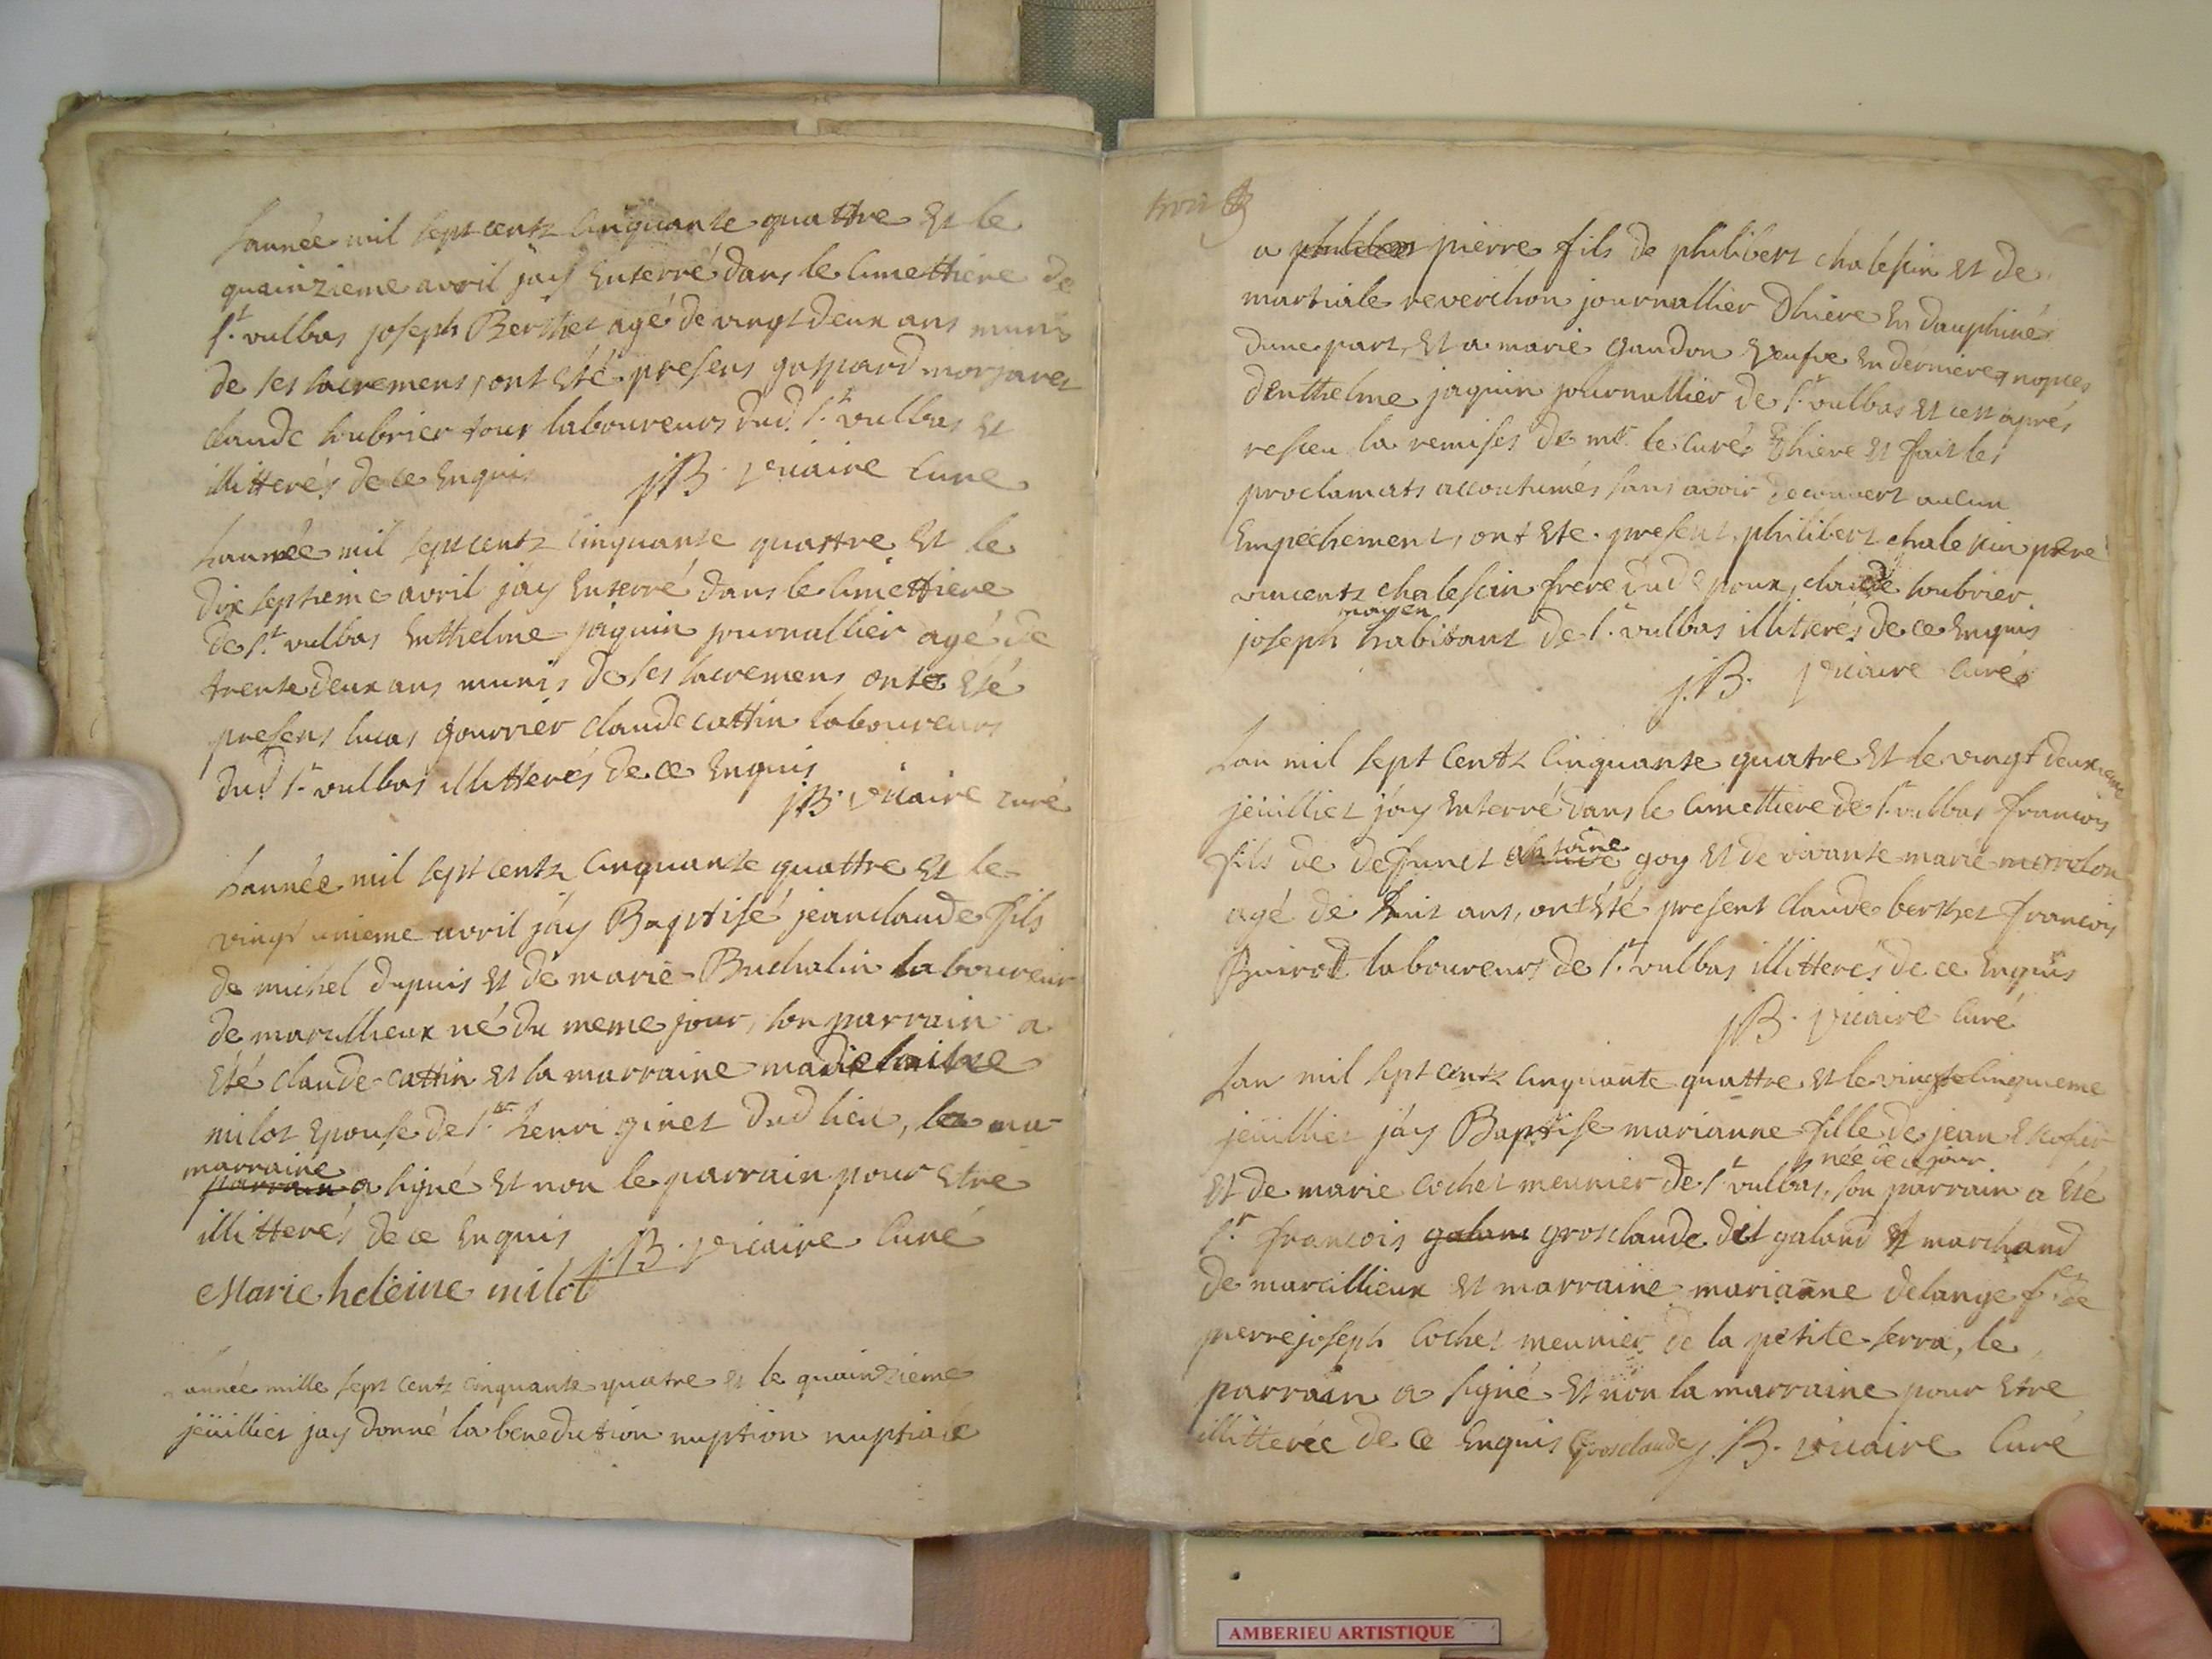 Lannée mil sept centz Cinquante quattre Et le
quainzieme avril jay Enterré dans le Cimettiere de
St. vulbas joseph Berthet agé de vingt deux ans munis
de ses sacremens, ont Eté presens gaspard morjaret
claude loubrier tous laboureurs dud. St. vulbas Et
illitterés de ce Enquis J.B. Vicaire Curé
Lannée mil sept centz Cinquante quattre Et le
dix septieme avril jáy Enterré dans le Cimettiere
de St. vulbas Enthelme jaquin journallier agé de
trente deux ans munis de ses sacremens ont Eté
presens lucas gourrier claude cattin laboureurs
dud St. vulbas illitterés de ce Enquis
J.B. Vicaire curé
Lannée mil sept centz Cinquante quattre Et le
vingt unieme avril jáy Baptisé jean claude fils
de michel dupuis Et de marie Buchalin laboureur
de marcillieux né du meme jour, son parrain a
Eté claude cattin Et la marraine madielaine
milot Epouse de Sr. henri ginet dud lieu, la ma-
marraine
parrain a signé Et non le parrain pour Etre
illitterés de ce Enquis J.B. Vicaire Curé
Marie heleine milot
Lannée mille sept centz cinquante quatre et le quainzieme
jeüillier jay donné la benediction nuption nuptiale
trois
a philiber pierre fils de philibert chalesin Et de
martiale reverchon journallier Dhiere En dauphiné
dune part, Et a marie gandon veufve En derniere nopces
denthelme jaquin journallier de St. vulbas Et cest aprés
resceu la remises de mr. le curé Dhiere Et fait les
proclamats accoutumés sans avoir decouvert aucun
Empéchement, ont Eté present, philibert chalesin pere
vincentz chalescin frere dud Epoux, claude loubrier
mayen
joseph habitant de St. vulbas illitterés de ce Enquis
J.B. Vicaire Curé
Lan mil sept Centz Cinquante quatre Et le vingt deuxieme
jeüilliet jáy Enterré dans le Cimettiere de St. vulbas francois
fils de defunct antoine goy Et de vivante marie merelon
agé de huit ans, ont Eté present claude berthet francois
Buirod laboureurs de St. vulbas illitterés de ce Enquis
J.B. Vicaire Curé
Lan mil sept centz Cinquante quattre Et le vingte Cinquieme
jeüilliet jáy Baptise marianne fille de jean Escofier
née de ce jour
Et de marie Cochet meunier de St. vulbas, son parrain a Eté
Sr. francois galand grosclaude dit galand Et marchand
de marcillieux Et marraine marianne delange fe. de
pierre joseph Cochet meunier de la petite serra, le
parrain a signé Et non la marraine pour Etre
illitterée de ce Enquis Grosclaude J.B. Vicaire Curé
AMBERIEU ARTISTIQUE